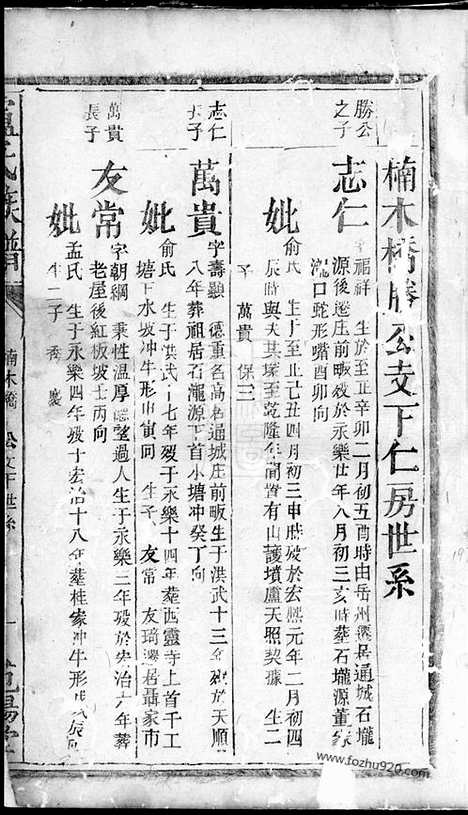 楠木橋勝公支下仁房世系
勝公之子
志仁 字福祥 生於至正辛卯二月初五酉時由岳州遷居通城石壠
源後遷庄前畈歿於永樂廿年八月初三亥時葬石壠源董家
口蛇形嘴酉卯向
妣 俞氏 生于至正己丑四月初三申時歿於宏熙元年二月初四
辰時與夫共塚至乾隆年間置有山護墳盧天照契據 生二
子 萬貴 保三
志仁長子
萬貴 字壽顯 德重名高移通城庄前畈生于洪武十三年歿於天順
八年葬祖居石壠源下首小塘冲癸丁向
妣 俞氏 生於洪武十七年歿于永樂十四年葬西靈寺上首千工
塘下水坡冲牛形山寅向 生子 友常 友琦遷居聶家市
萬貴長子
友常 字朝綱 秉性溫厚 望過人生于永樂二年歿於宏治六年葬
老屋後紅板坡壬丙向
妣 孟氏 生于永樂四年歿于宏治十八年葬桂家冲牛形 辰向
生二子 秀 慶
盧氏族譜
楠木橋 公支下世系
一
范陽堂
www.fozhu920.com